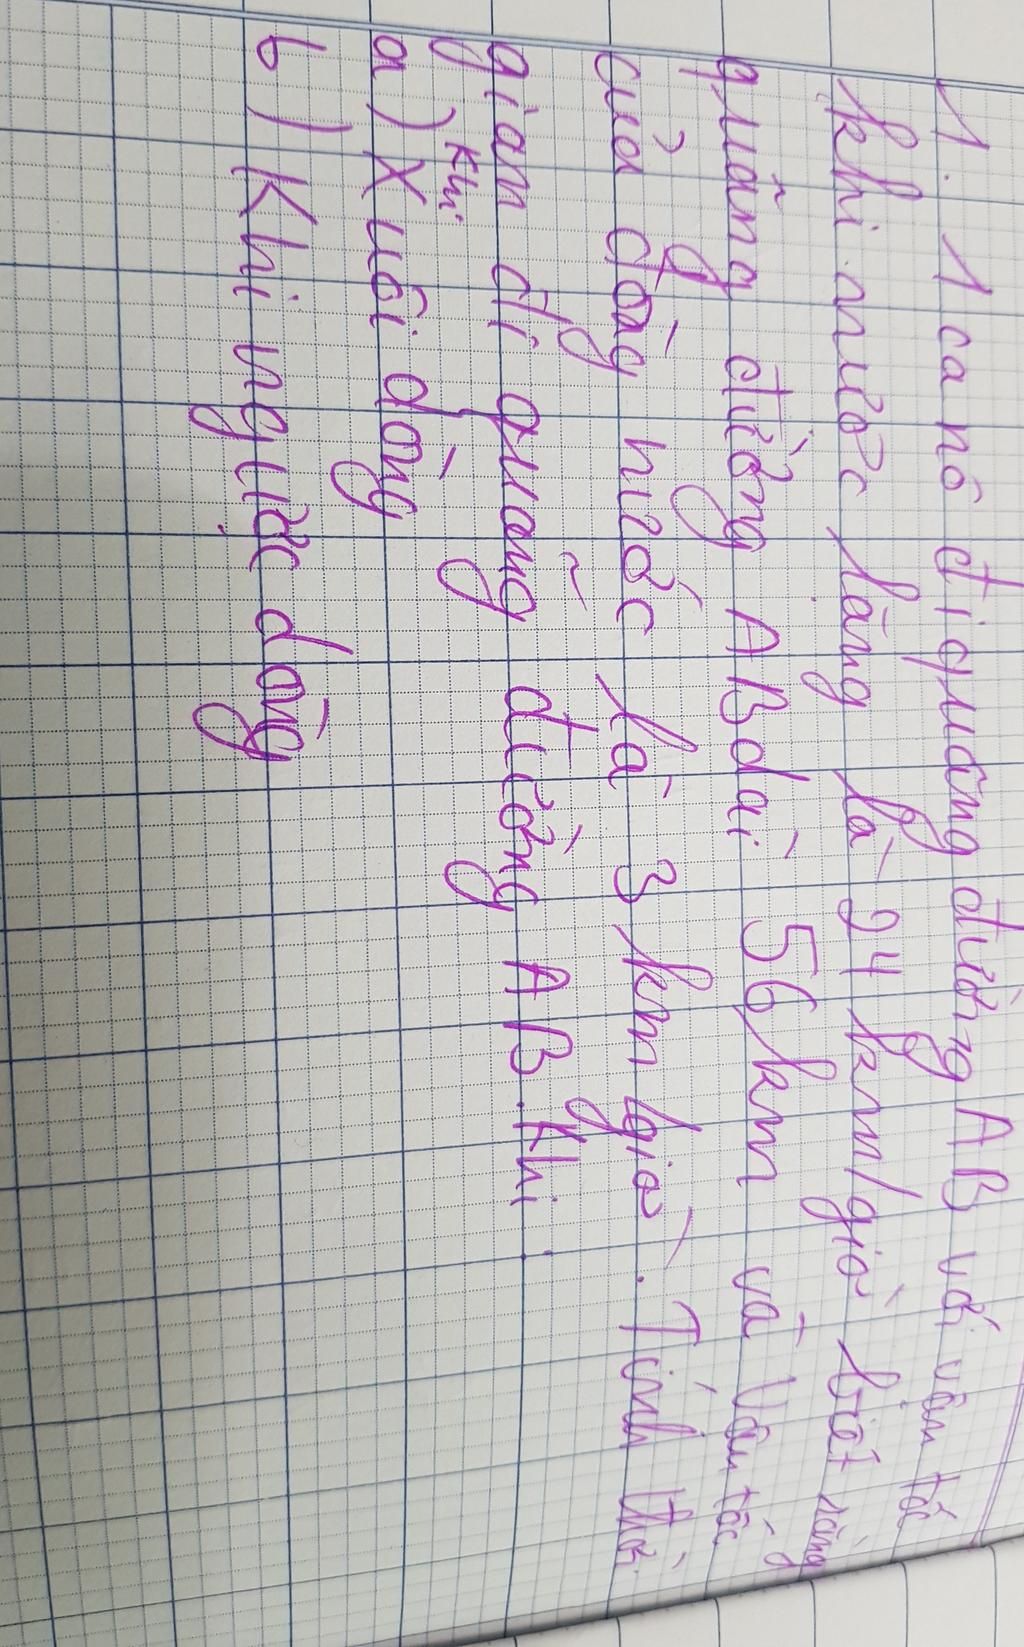 1. 1 ca nô đi quãng đường AB với vận tốc
khi nước lặng là 24 km/giờ biết rằng
quãng đường AB dài 56 km và vận tốc
của dòng nước là 3 km/giờ. Tính thời
gian đi quãng đường AB. Khi:
a) Khi Xuôi dòng
b) Khi ngược dòng